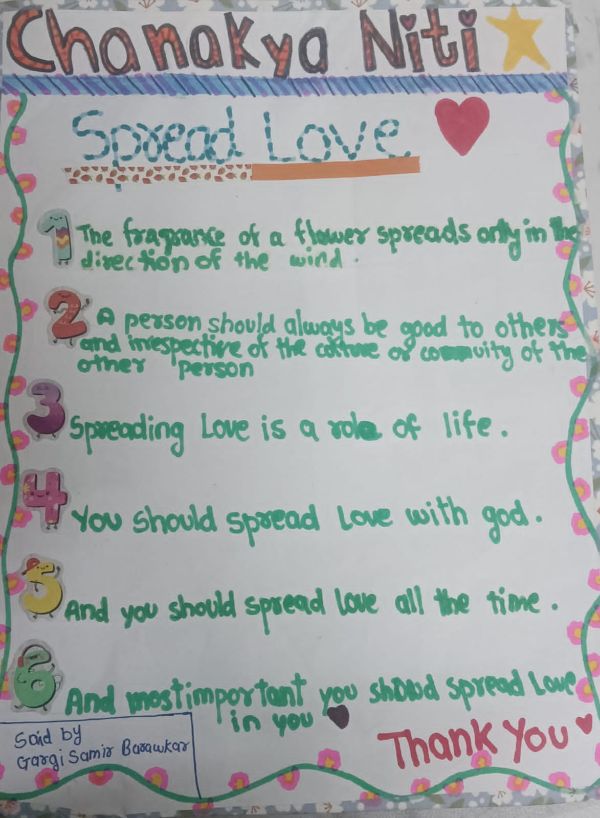 Chanakya Niti
Spread Love
1 The fragrance of a flower spreads only in the
direction of the wind.
2 A person should always be good to others
and irrespective of the culture or community of the
other person
3 Spreading Love is a role of life.
4 You should spread Love with god.
5 And you should spread love all the time.
6 And most important you should spread Love
in you
Said by
Gargi Samir Barawkar
Thank You